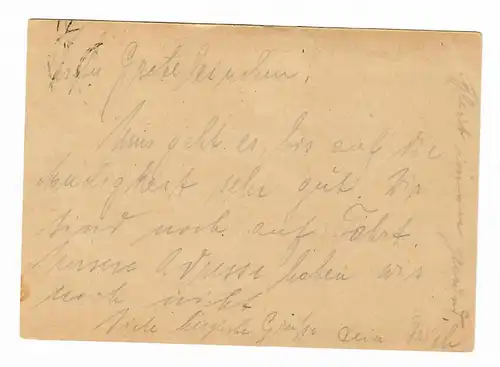 Liebe Grete
Uns geht es bis auf die
Müdigkeit sehr gut. Wir
sind noch auf Fahrt.
Unsere Adresse haben wir
noch nicht
Viele herzliche Grüße Dein